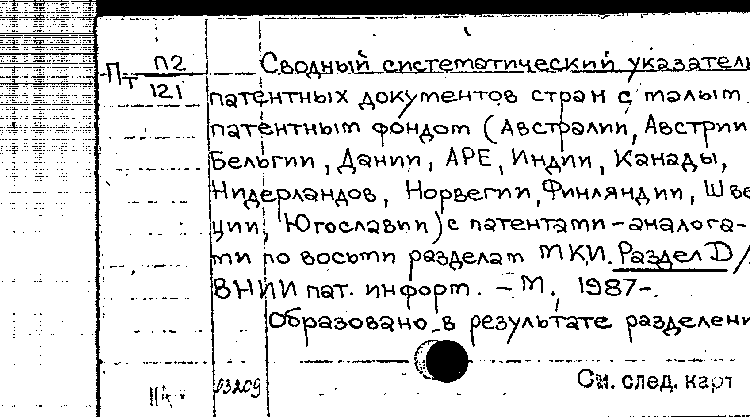 Пт П2/121
Сводный систематический указатель
патентных документов стран с малым
патентным фондом (Австралии, Австрии
Бельгии, Дании, АРЕ, Индии, Канады,
Нидерландов, Норвегии, Финляндии, Шве
ции, Югославии) с патентами-аналога-
ми по восьми разделам МКИ. Раздел D /
ВНИИ пат. информ. - М., 1987-.
Образовано в результате разделени
См. след. карт
03209